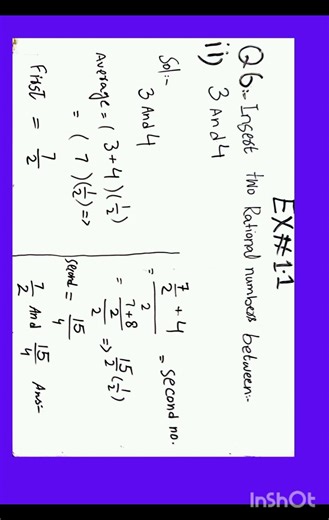 EX#1.1
Q6:- Insert two Rational numbers between:-
ii) 3 And 4
Sol:-
3 And 4
Average = (3+4)(1/2)
= (7)(1/2) =>
First = 7/2
7/2 + 4
= ───── = second no.
2
= (7+8)/2 / 2 => 15/2 (1/2)
second = 15/4
7/2 And 15/4 Ans:-
InShOt